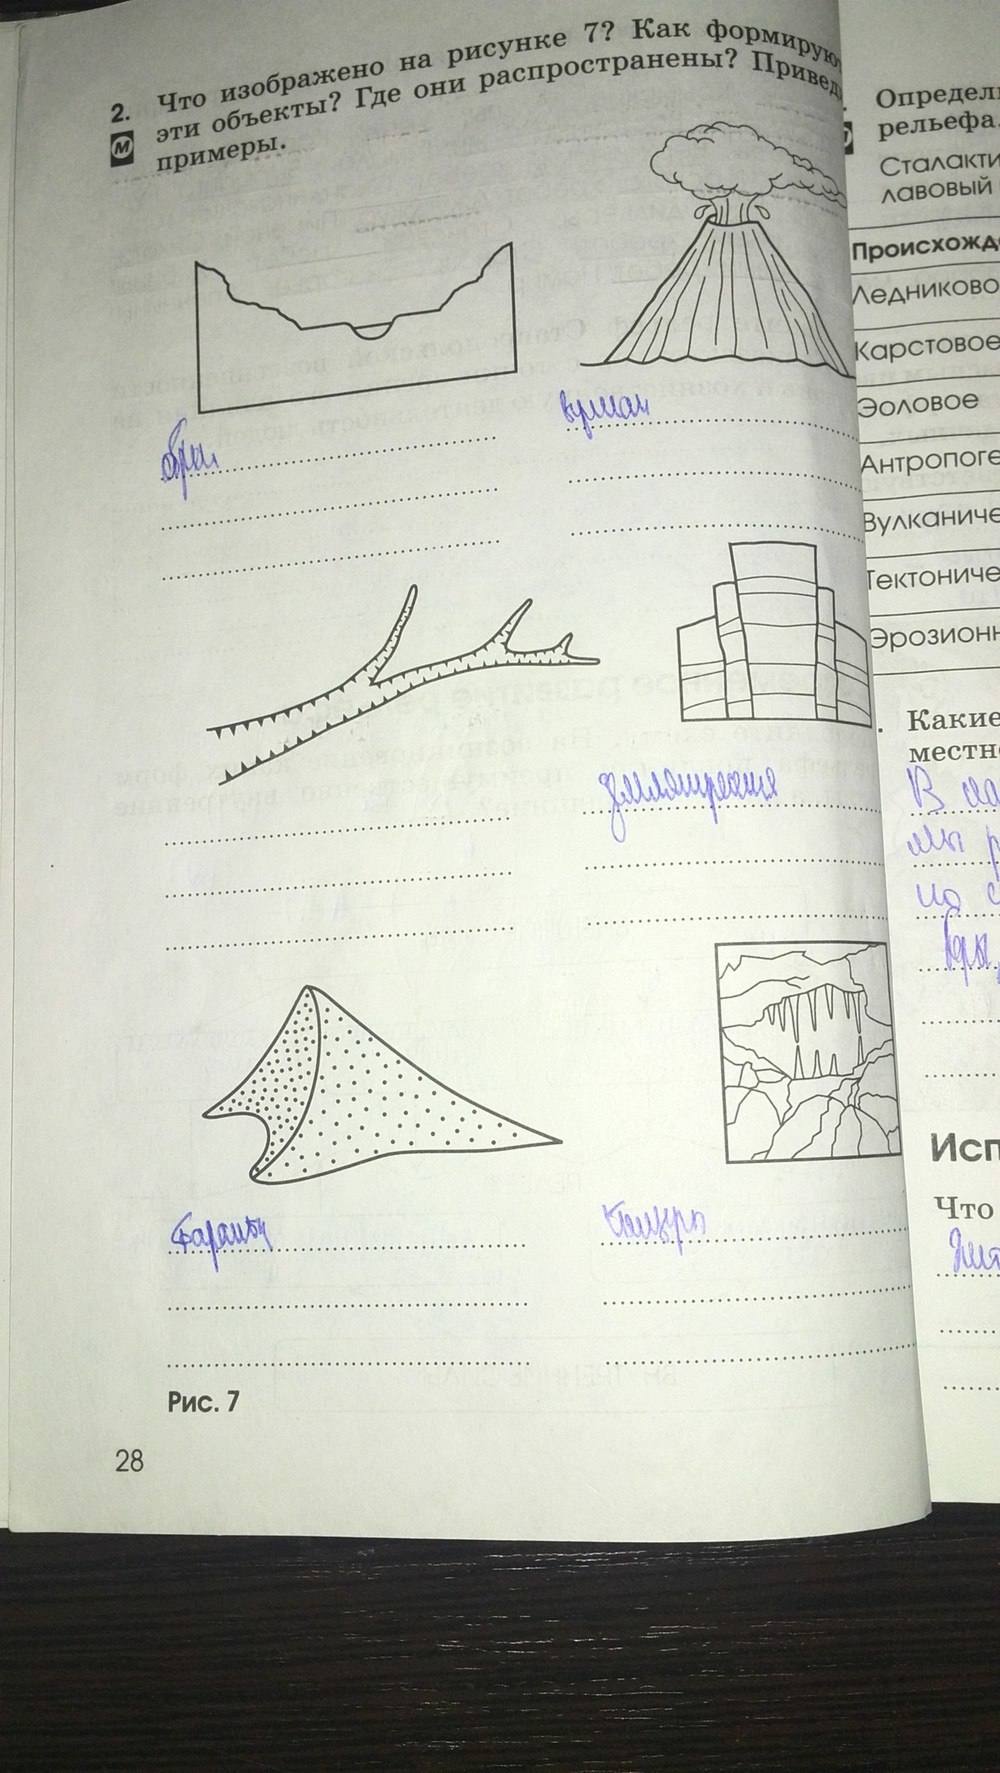 2. Что изображено на рисунке 7? Как формирую
М эти объекты? Где они распространены? Приведи
примеры.
вулкан
Рис. 7
28
Определи
рельефа.
Сталакти
лавовый
Происхожд
Ледниково
Карстовое
Эоловое
Антропоге
Вулканиче
Тектониче
Эрозионн
Какие
местно
мы р
на с
Исп
Что